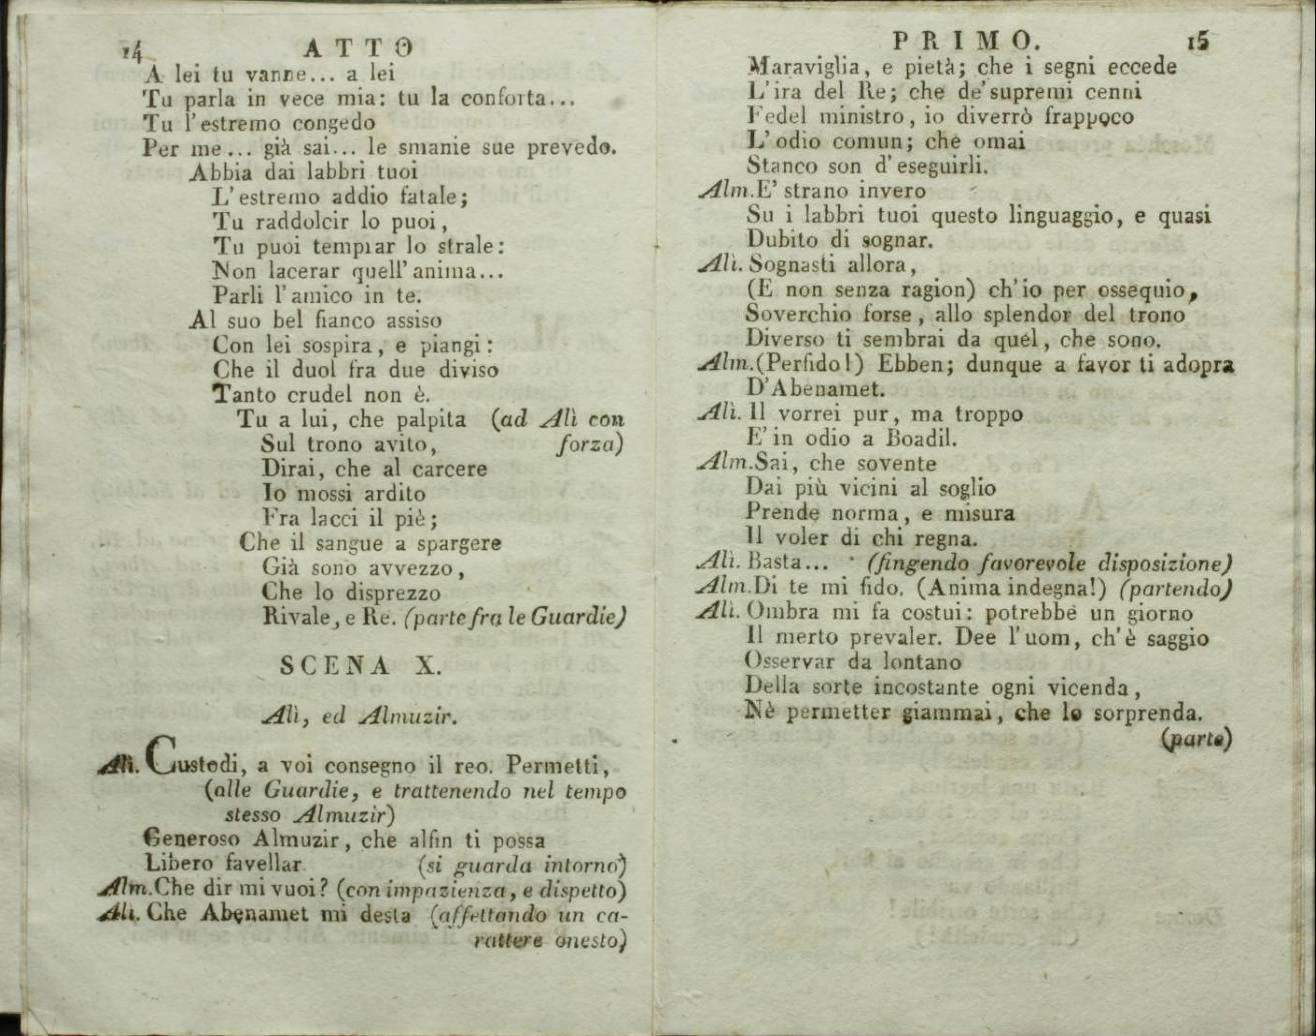 14 ATTO
A lei tu vanne... a lei
Tu parla in vece mia: tu la conforta...
Tu l'estremo congedo
Per me... già sai... le smanie sue prevedo.
Abbia dai labbri tuoi
L'estremo addio fatale;
Tu raddolcir lo puoi,
Tu puoi temprar lo strale:
Non lacerar quell'anima...
Parli l'amico in te.
Al suo bel fianco assiso
Con lei sospira, e piangi:
Che il duol fra due diviso
Tanto crudel non è.
Tu a lui, che palpita (ad Alì con
Sul trono avito, forza)
Dirai, che al carcere
Io mossi ardito
Fra lacci il piè;
Che il sangue a spargere
Già sono avvezzo,
Che lo disprezzo
Rivale, e Re. (parte fra le Guardie)
SCENA X.
Alì, ed Almuzir.
Alì. Custodi, a voi consegno il reo. Permetti,
(alle Guardie, e trattenendo nel tempo
stesso Almuzir)
Generoso Almuzir, che alfin ti possa
Libero favellar (si guarda intorno)
Alm. Che dir mi vuoi? (con impazienza, e dispetto)
Alì. Che Abenamet mi desta (affettando un ca-
rattere onesto)
PRIMO. 15
Maraviglia, e pietà; che i segni eccede
L'ira del Re; che de' supremi cenni
Fedel ministro, io diverrò frappoco
L'odio comun; che omai
Stanco son d'eseguirli.
Alm. E' strano invero
Su i labbri tuoi questo linguaggio, e quasi
Dubito di sognar.
Alì. Sognasti allora,
(E non senza ragion) ch'io per ossequio,
Soverchio forse, allo splendor del trono
Diverso ti sembrai da quel, che sono.
Alm. (Perfido!) Ebben; dunque a favor ti adopra
D'Abenamet.
Alì. Il vorrei pur, ma troppo
E' in odio a Boadil.
Alm. Sai, che sovente
Dai più vicini al soglio
Prende norma, e misura
Il voler di chi regna.
Alì. Basta... (fingendo favorevole disposizione)
Alm. Di te mi fido. (Anima indegna!) (partendo)
Alì. Ombra mi fa costui: potrebbe un giorno
Il merto prevaler. Dee l'uom, ch'è saggio
Osservar da lontano
Della sorte incostante ogni vicenda,
Nè permetter giammai, che lo sorprenda.
(parte)